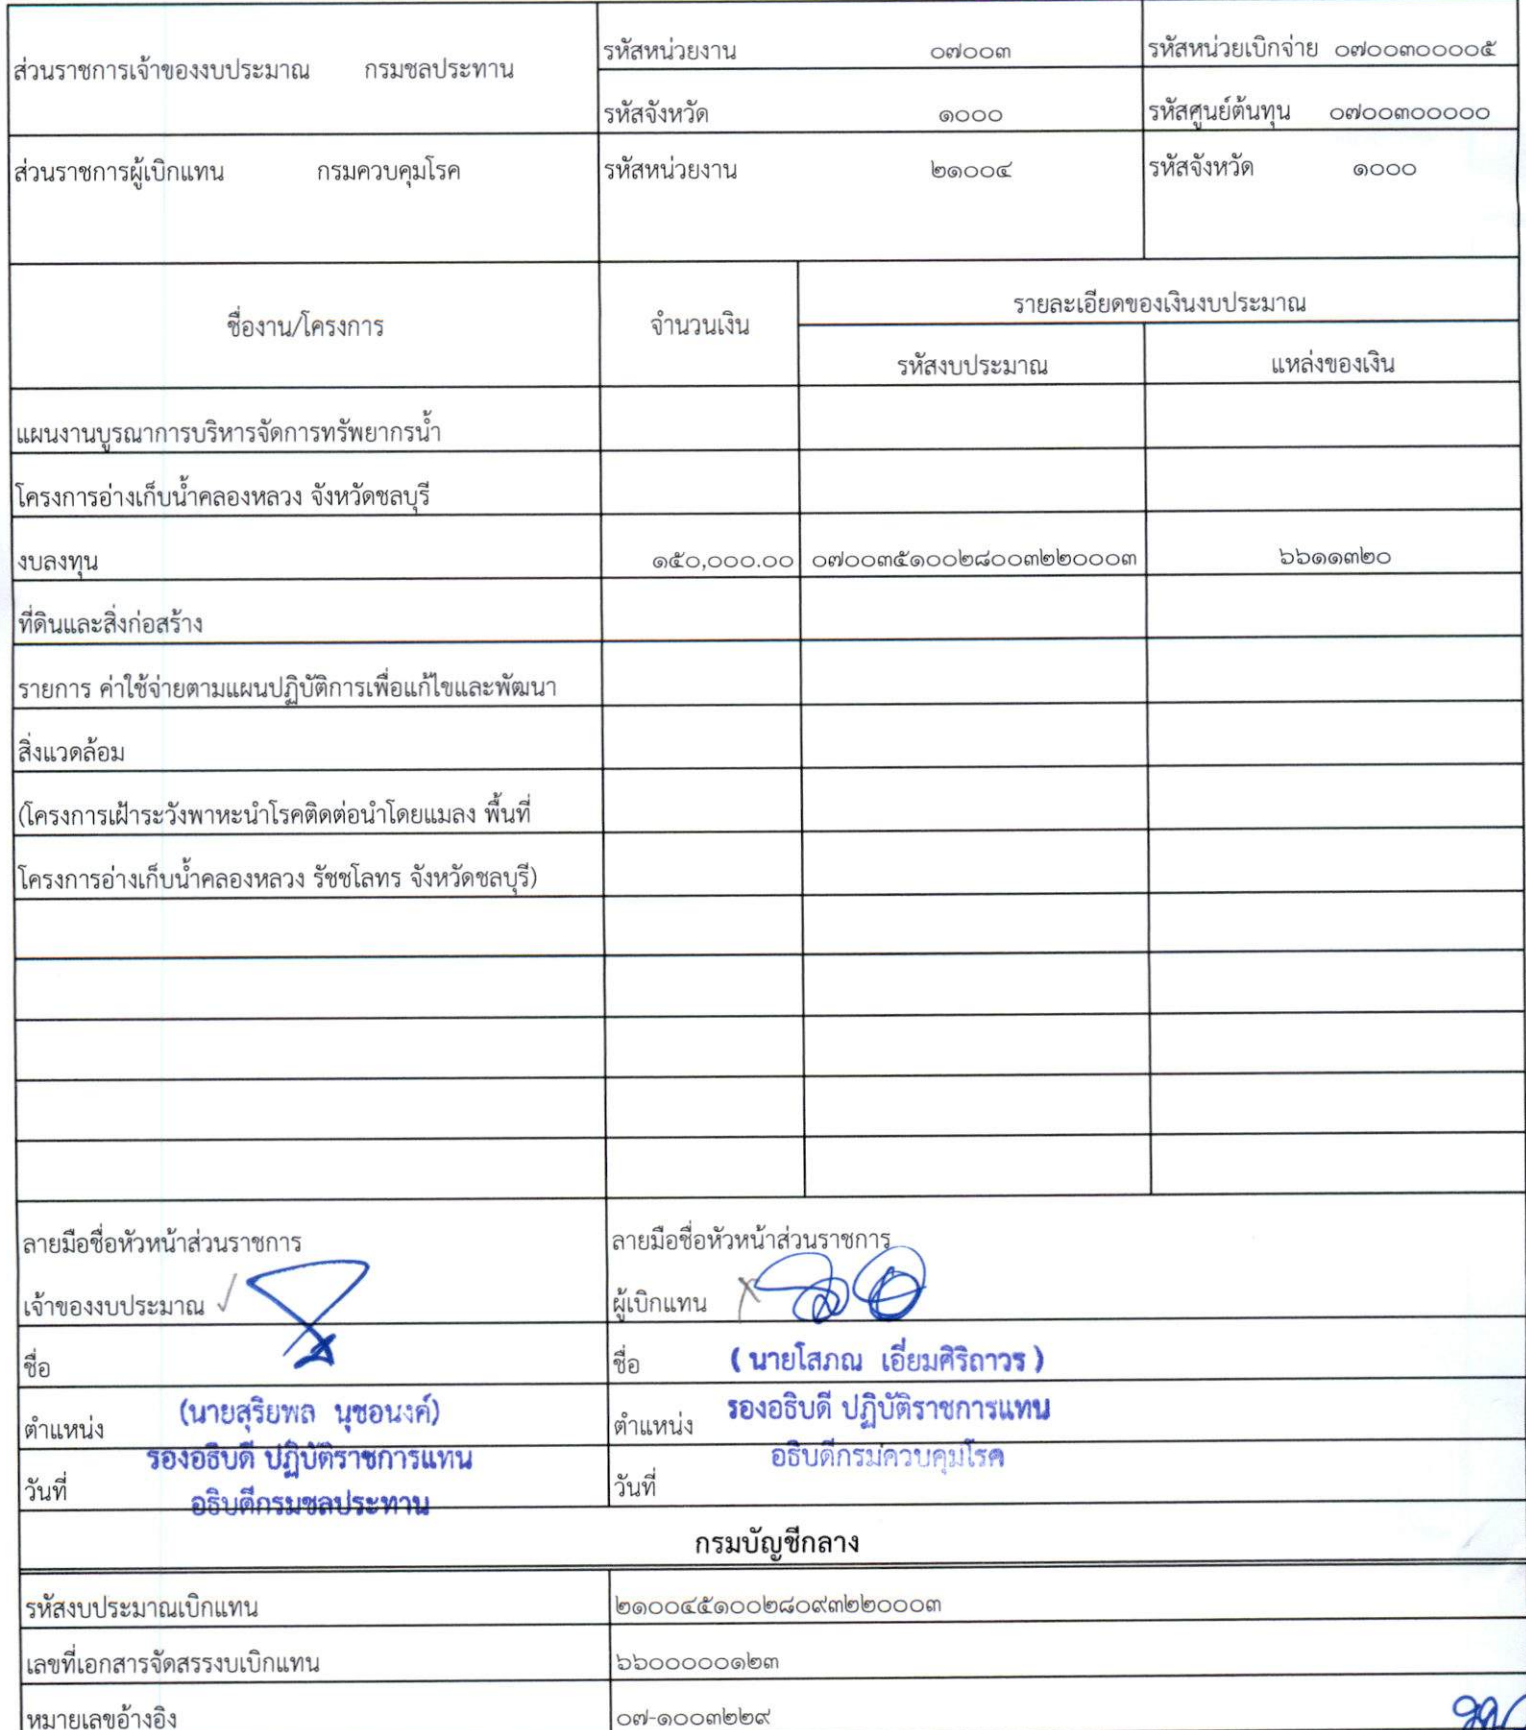 ส่วนราชการเจ้าของงบประมาณ กรมชลประทาน รหัสหน่วยงาน ๐๗๐๐๓ รหัสหน่วยเบิกจ่าย ๐๗๐๐๓๐๐๐๐๕
รหัสจังหวัด ๑๐๐๐ รหัสศูนย์ต้นทุน ๐๗๐๐๓๐๐๐๐๐
ส่วนราชการผู้เบิกแทน กรมควบคุมโรค รหัสหน่วยงาน ๒๑๐๐๔ รหัสจังหวัด ๑๐๐๐
ชื่องาน/โครงการ จำนวนเงิน รายละเอียดของเงินงบประมาณ
รหัสงบประมาณ แหล่งของเงิน
แผนงานบูรณาการบริหารจัดการทรัพยากรน้ำ
โครงการอ่างเก็บน้ำคลองหลวง จังหวัดชลบุรี
งบลงทุน ๑๕๐,๐๐๐.๐๐ ๐๗๐๐๓๕๑๐๐๒๘๐๐๓๒๒๐๐๐๓ ๖๖๑๑๓๒๐
ที่ดินและสิ่งก่อสร้าง
รายการ ค่าใช้จ่ายตามแผนปฏิบัติการเพื่อแก้ไขและพัฒนา
สิ่งแวดล้อม
(โครงการเฝ้าระวังพาหะนำโรคติดต่อนำโดยแมลง พื้นที่
โครงการอ่างเก็บน้ำคลองหลวง รัชชโลทร จังหวัดชลบุรี)
ลายมือชื่อหัวหน้าส่วนราชการ ลายมือชื่อหัวหน้าส่วนราชการ
เจ้าของงบประมาณ ผู้เบิกแทน
ชื่อ ชื่อ (นายโสภณ เอี่ยมศิริถาวร)
ตำแหน่ง (นายสุริยพล นุชอนงค์) ตำแหน่ง รองอธิบดี ปฏิบัติราชการแทน
รองอธิบดี ปฏิบัติราชการแทน อธิบดีกรมควบคุมโรค
วันที่ อธิบดีกรมชลประทาน วันที่
กรมบัญชีกลาง
รหัสงบประมาณเบิกแทน ๒๑๐๐๔๕๑๐๐๒๘๐๙๓๒๒๐๐๐๓
เลขที่เอกสารจัดสรรงบเบิกแทน ๖๖๐๐๐๐๐๑๒๓
หมายเลขอ้างอิง ๐๗-๑๐๐๓๒๒๙